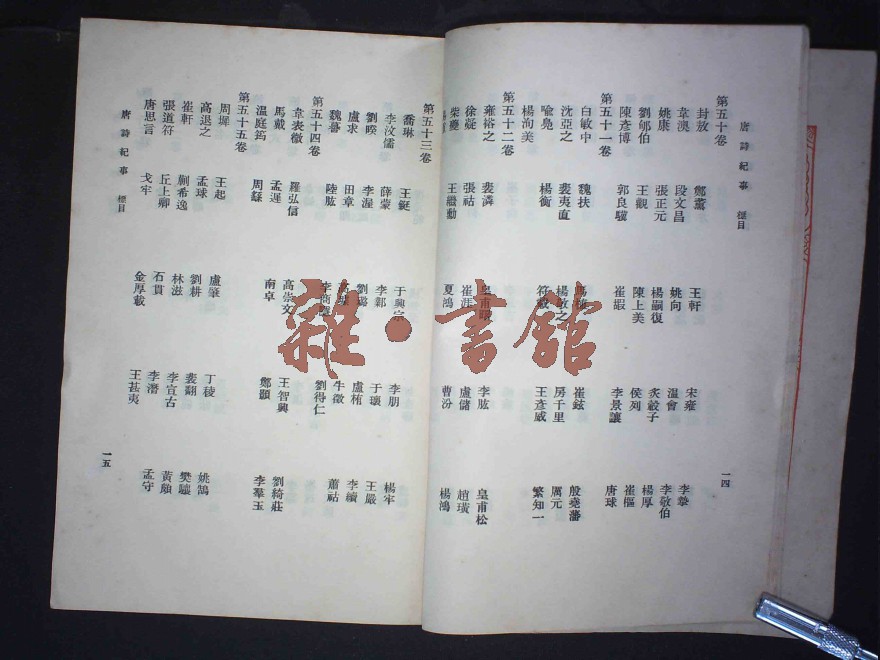 唐詩紀事 標目
第五十卷
封敖 鄭薰 王軒 宋雍 李摯
韋澳 段文昌 姚向 溫會 李敬伯
姚康 張正元 楊嗣復 炙轂子 楊厚
劉邺伯 王觀 陳上美 侯列 崔樞
陳彥博 郭良驥 崔嘏 李景讓 唐球
第五十一卷
白敏中 魏扶 崔鉉 殷堯藩
沈亞之 裴夷直 楊敬之 房千里 厲元
喻鳧 楊衡 符載 王彥威 繁知一
楊洵美
第五十二卷
雍裕之 裴潾 皇甫曙 李肱 皇甫松
徐凝 張祜 崔涯 盧儲 趙璜
柴夔 王繼勳 夏鴻 曹汾 楊鴻
一四
第五十三卷
喬琳 王鋌 于興宗 李朋 楊牢
李汶儒 薛蒙 李鄴 于瓌 王嚴
劉㬇 李渥 劉璐 盧栯 李續
盧求 田章 牛徵 蕭祜
魏謩 陸肱 李商隱 劉得仁
第五十四卷
韋表微 羅弘信 高崇文 王智興 劉綺莊
馬戴 孟遲 南卓 鄭顥 李羣玉
溫庭筠 周繇
第五十五卷
周墀 王起 盧肇 丁稜 姚鵠
高退之 孟球 劉耕 裴翻 樊驤
崔軒 蒯希逸 林滋 李宣古 黃頗
張道符 丘上卿 石貫 李潛 孟守
唐思言 戈牢 金厚載 王甚夷
唐詩紀事 標目
一五
雜·書館